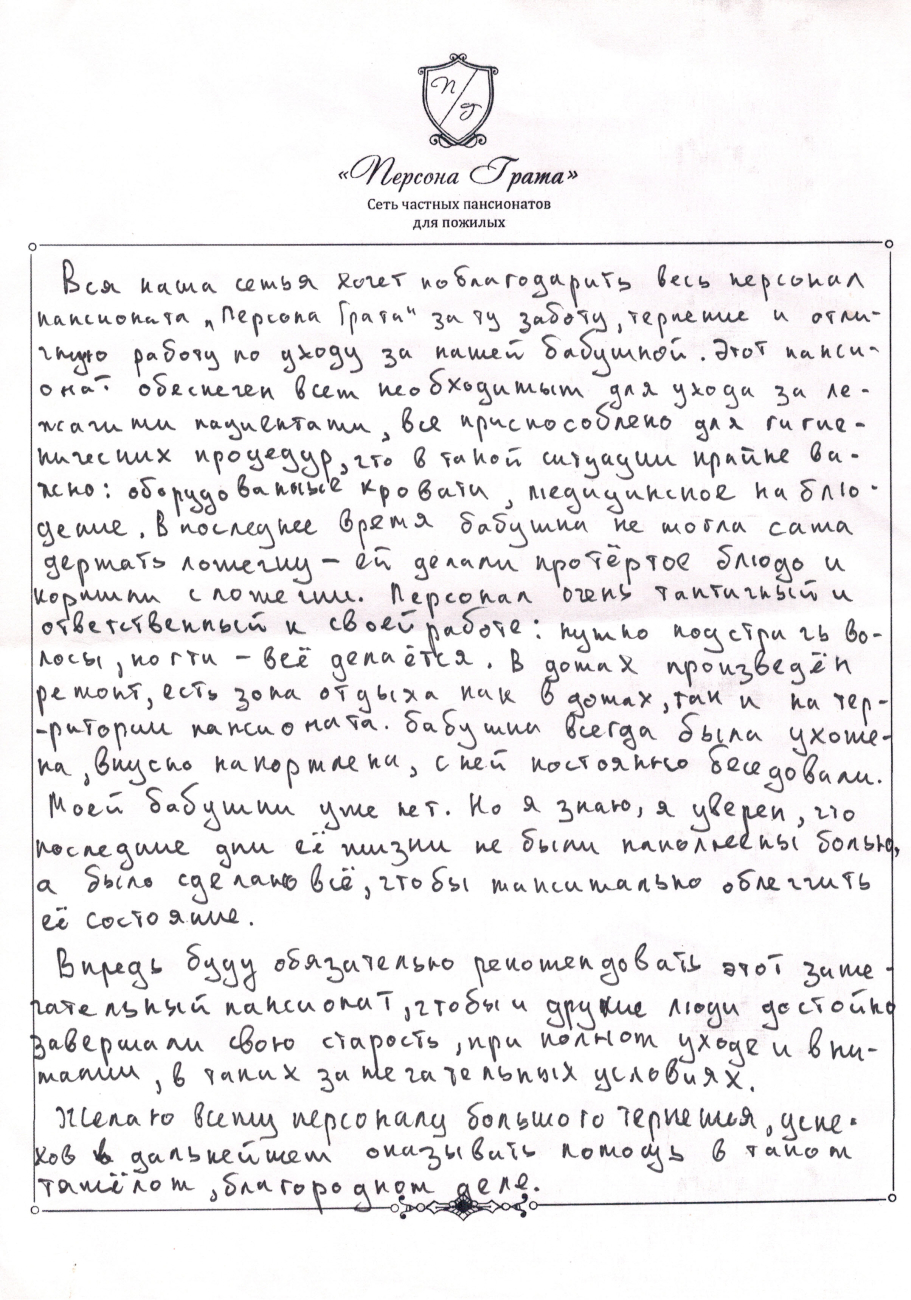 П/Г
«Персона Грата»
Сеть частных пансионатов
для пожилых
Вся наша семья хочет поблагодарить весь персонал
пансионата „Персона Грата" за ту заботу, терпение и отли-
чную работу по уходу за нашей бабушкой. Этот панси-
онат обеспечен всем необходимым для ухода за ле-
жачими пациентами, все приспособлено для гигие-
нических процедур, что в такой ситуации крайне ва-
жно: оборудованные кровати, медицинское наблю-
дение. В последнее время бабушка не могла сама
держать ложечку – ей делали протёртое блюдо и
кормили с ложечки. Персонал очень тактичный и
ответственный к своей работе: нужно подстричь во-
лосы, ногти – всё делается. В домах произведён
ремонт, есть зона отдыха как в домах, так и на тер-
-ритории пансионата. Бабушка всегда была ухоже-
на, вкусно накормлена, с ней постоянно беседовали.
Моей бабушки уже нет. Но я знаю, я уверен, что
последние дни её жизни не были наполнены болью,
а было сделано всё, чтобы максимально облегчить
её состояние.
Впредь буду обязательно рекомендовать этот заме-
чательный пансионат, чтобы и другие люди достойно
завершали свою старость, при полном уходе и вни-
мании, в таких замечательных условиях.
Желаю всему персоналу большого терпения, успе-
хов в дальнейшем оказывать помощь в таком
тяжёлом, благородном деле.